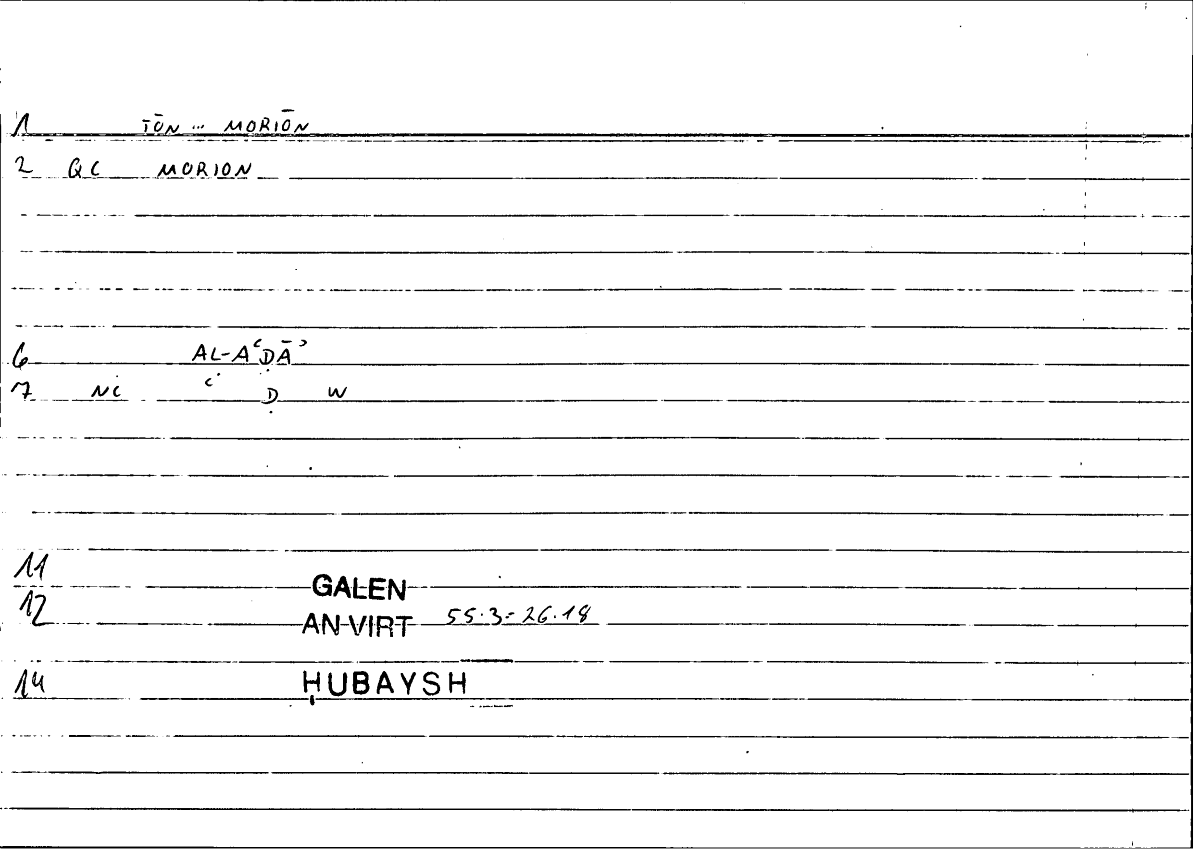 1 TŌN ... MORIŌN
2 QC MORION
6 AL-AʿḌĀʾ
7 NC ʿ Ḍ W
11 GALEN
12 AN VIRT 55.3=26.18
14 ḤUBAYSH